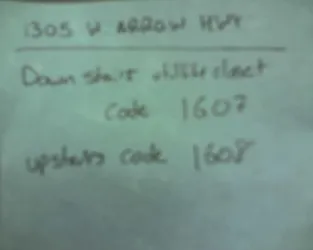 1305 W ARROW HWY
Down stair closet
Code 1607
upstairs code 1608